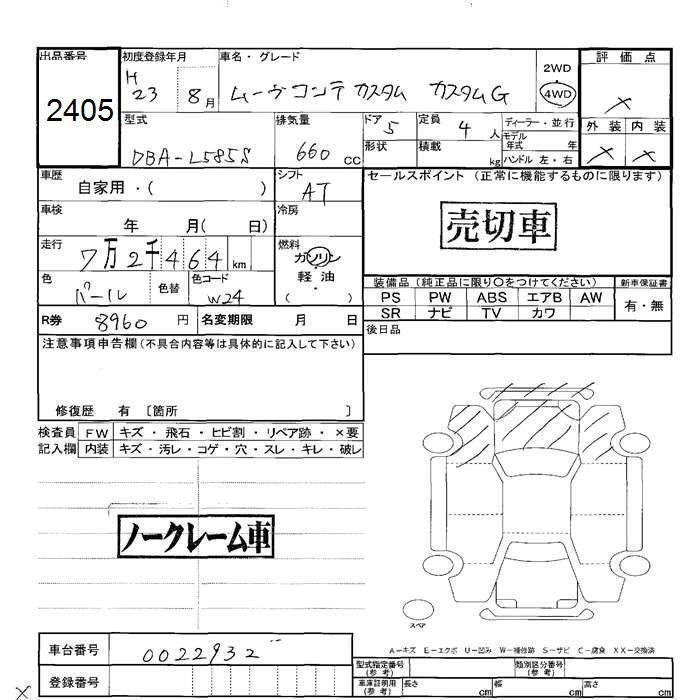 出品番号 初度登録年月 車名・グレード 評価点
2405 H 23 8月 ムーヴコンテカスタム カスタムG 2WD 4WD ×
型式 排気量 ドア 定員 ディーラー・並行 外装 内装
DBA-L585S 660 cc 5 4人 モデル年式 年 × ×
形状 積載 kg ハンドル 左・右
車歴 自家用・( ) シフト AT セールスポイント (正常に機能するものに限ります)
車検 年 月( 日) 冷房 売切車
走行 7万2千464 km 燃料 ガソリン
軽・油
( )
色 パール 色替 色コード W24 装備品(純正品に限り〇をつけてください) 新車保証書
PS PW ABS エアB AW 有・無
SR ナビ TV カワ
R券 8960 円 名変期限 月 日 後日品
注意事項申告欄(不具合内容等は具体的に記入して下さい)
修復歴 有 〔箇所 〕
検査員 FW キズ・飛石・ヒビ割・リペア跡・×要
記入欄 内装 キズ・汚レ・コゲ・穴・スレ・キレ・破レ
ノークレーム車
スペア
A−キズ E−エクボ U−凹み W−補修跡 S−サビ C−腐食 XX−交換済
車台番号 0022932
型式指定番号(参考) 類別区分番号(参考)
登録番号 車庫証明用(参考) 長さ cm 幅 cm 高さ cm
×